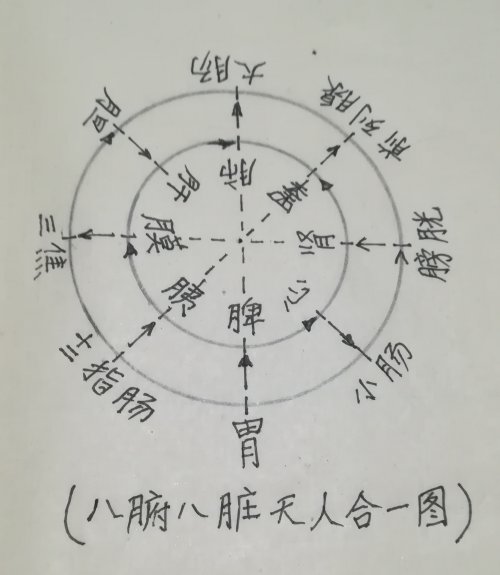 大肠
前列腺
膀胱
小肠
胃
十二指肠
三焦
胆
肺
睾
肾
心
脾
胰
膜
肝
(八腑八脏天人合一图)